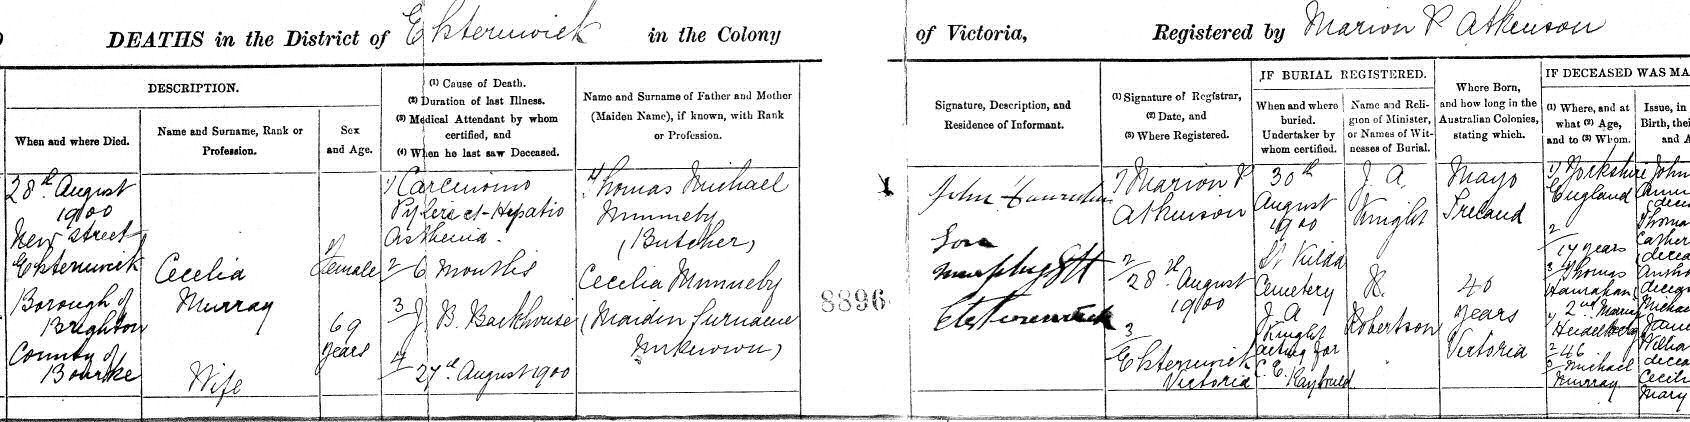 DEATHS in the District of Elsternwick in the Colony
of Victoria, Registered by Marion P Atkinson
DESCRIPTION.
When and where Died.
Name and Surname, Rank or
Profession.
Sex
and Age.
(1) Cause of Death.
(2) Duration of last Illness.
(3) Medical Attendant by whom
certified, and
(4) When he last saw Deceased.
Name and Surname of Father and Mother
(Maiden Name), if known, with Rank
or Profession.
28th August
1900
New Street
Elsternwick
Borough of
Brighton
County of
Bourke
Cecelia
Murray
Wife
Female
69
years
1) Carcinoma
Asthenia.
2 6 Months
3 J B. Backhouse
4
27th August 1900
Thomas Michael
(Butcher)
Cecelia
(Maiden Surname
Unknown)
8896
Signature, Description, and
Residence of Informant.
John
Son
Murphy St
Elsternwick
(1) Signature of Registrar,
(2) Date, and
(3) Where Registered.
1) Marion P
Atkinson
2
28th August
1900
3
Elsternwick
Victoria
IF BURIAL REGISTERED.
When and where
buried.
Undertaker by
whom certified.
30th
August
1900
St Kilda
Cemetery
J. A
Knight
acting for
C. E. Raybould
Name and Reli-
gion of Minister,
or Names of Wit-
nesses of Burial.
J. A.
Knight
R.
Robertson
Where Born,
and how long in the
Australian Colonies,
stating which.
Mayo
Ireland
40
years
Victoria
IF DECEASED WAS MA
(1) Where, and at
what (2) Age,
and to (3) Whom.
1) Yorkshire
England
2
17 years
3 Thomas
Hanrahan
2nd Marriage
1 Heidelberg
2 46
3 Michael
Murray
Issue, in
Birth, thei
and A
John
Thoma
Cather
decea
Michae
Jame
Willia
decea
Cecili
Mary